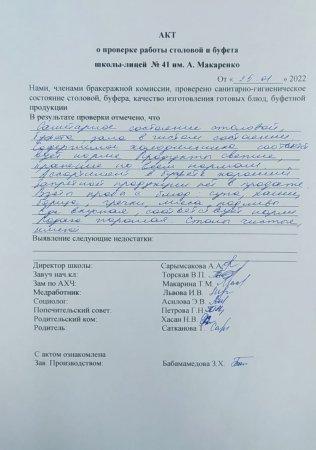 АКТ
о проверке работы столовой и буфета
школы-лицей № 41 им. А. Макаренко
От « 25 01 » 2022
Нами, членами бракеражной комиссии, проверено санитарно-гигиеническое
состояние столовой, буфера, качество изготовления готовых блюд, буфетной
продукции
В результате проверки отмечено, что
Санитарное состояние столовой
зала в чистом состоянии
Содержимое холодильника соответ
вует норме Продукты свежие,
хранение по всем нормам
Ассортимент в буфете хороший
запрещной продукции нет в продаже
проба блюд супа, каши,
борща, гречки, мяса, подливы
Еда вкусная, соответствует норме
хорошая Столы чистые,
Выявление следующие недостатки:
Директор школы: Сарымсакова А.А.
Завуч нач.кл: Торская В.П.
Зам по АХЧ: Макарина Г.М.
Медработник: Львова И.В.
Социолог: Асилова Э.В.
Попечительский совет: Петрова Г.Н.
Родительский ком: Хасан Н.В.
Родитель: Сатканова Т.
С актом ознакомлена
Зав. Производством: Бабамамедова З.Х.